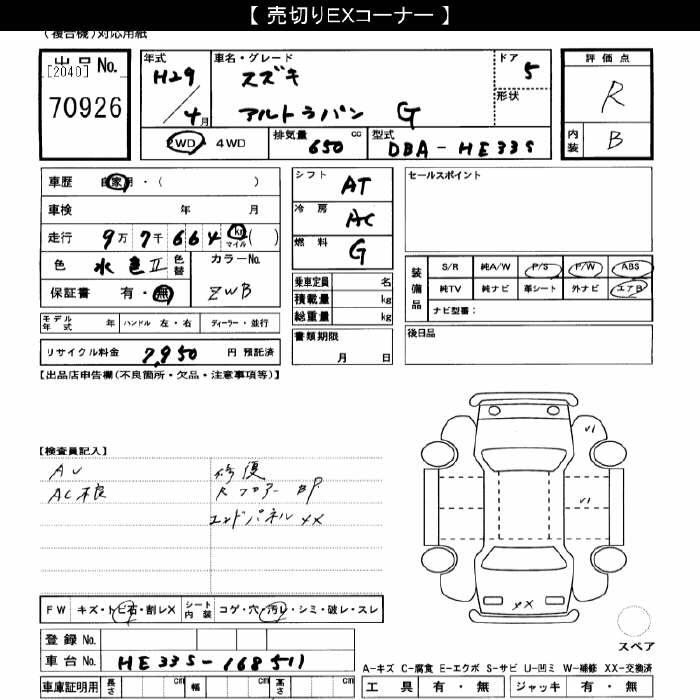 【 売切りEXコーナー 】
(複合機)対応用紙
出品 No.
[2040]
70926
年式
H29
4月
車名・グレード
スズキ
アルトラパン G
ドア
5
形状
評価点
R
内装
B
2WD・4WD
排気量 650 cc
型式 DBA-HE33S
車歴 自家用・( )
車検 年 月
走行 9万7千664 km マイル ( )
色 水色Ⅱ 色替
カラーNo. ZWB
保証書 有・無
モデル年式 年 ハンドル 左・右 ディーラー・並行
リサイクル料金 7,950 円 預託済
シフト AT
冷房 AC
燃料 G
乗車定員 名
積載量 kg
総重量 kg
書類期限
月 日
セールスポイント
装備品
S/R 純A/W P/S P/W ABS
純TV 純ナビ 革シート 外ナビ エアB
ナビ型番：
後日品
【出品店申告欄(不良箇所・欠品・注意事項等)】
【検査員記入】
AC不良
修復
Rフロアー BP
エンドパネル XX
U1
U1
XX
FW キズ・トビ石・割レX
シート内装 コゲ・穴・汚レ・シミ・破レ・スレ
登録 No.
車台 No. HE33S-168511
車庫証明用 長さ cm 幅 cm 高さ cm
スペア
A-キズ C-腐食 E-エクボ S-サビ U-凹ミ W-補修 XX-交換済
工具 有・無 ジャッキ 有・無